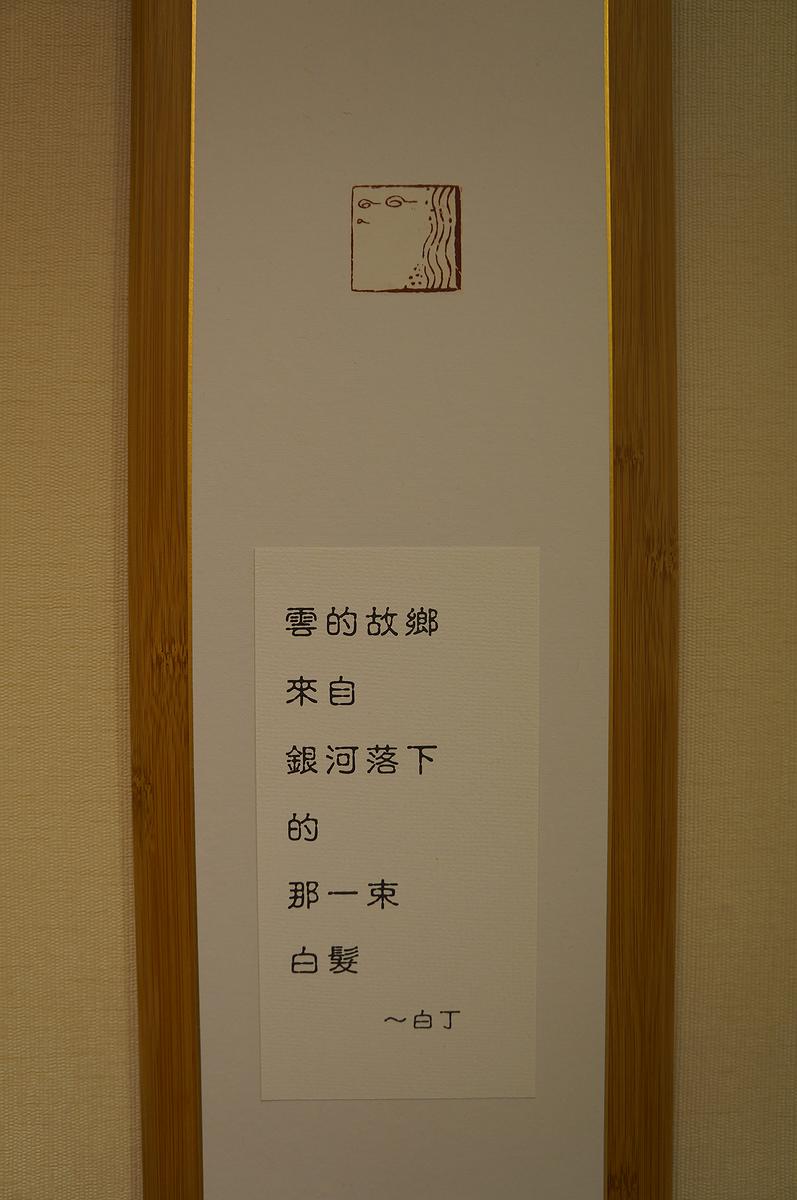 雲的故鄉
來自
銀河落下
的
那一束
白髮
～白丁